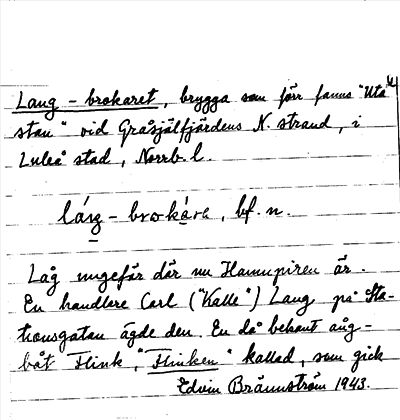 Lang-brokaret, brygga som förr fanns "Uta
stan" vid Gråsjälfjärdens N. strand, i
Luleå stad, Norrb. l.
láŋg-brokára, bf. n.
Låg ungefär där nu Hamnpiren är.
En handlare Carl ("Kalle") Lang på Sta-
tionsgatan ägde den. En då bekant ång-
båt Flink, "Flinken" kallad, som gick
Edvin Brännström 1943.